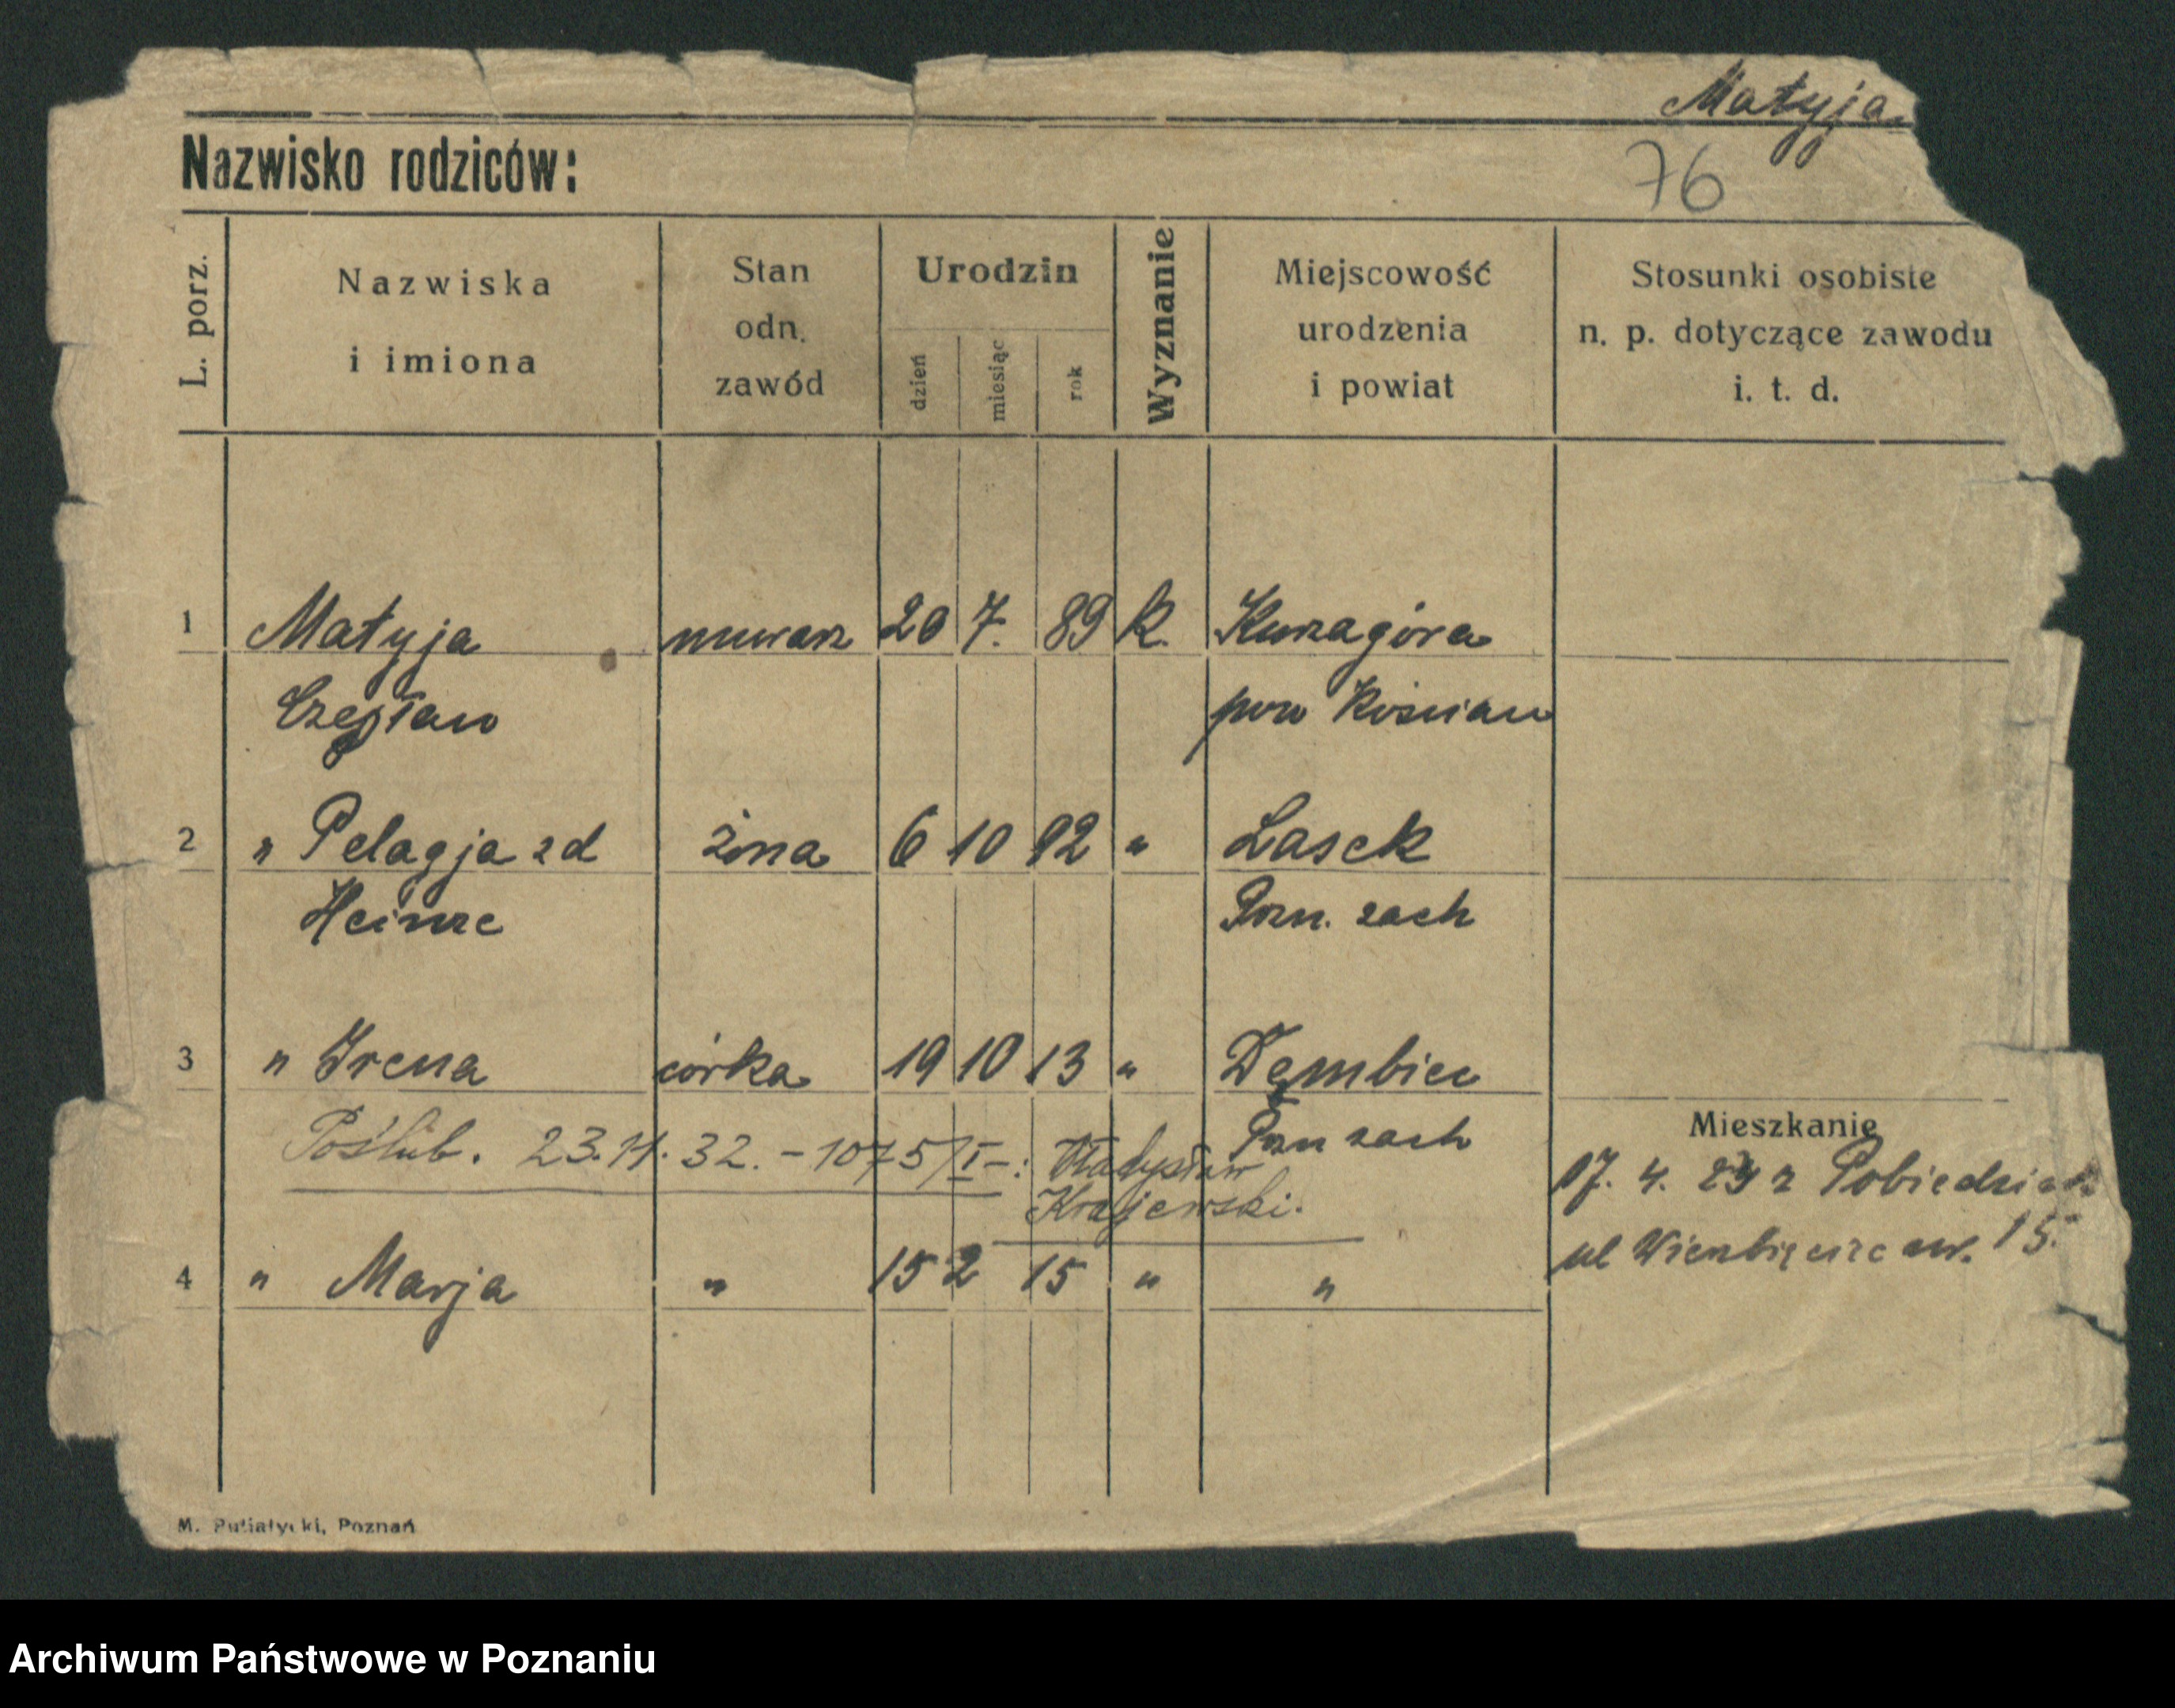 Matyja
76
Nazwisko rodziców:
L. porz.
Nazwiska
i imiona
Stan
odn.
zawód
Urodzin
dzień
miesiąc
rok
Wyznanie
Miejscowość
urodzenia
i powiat
Stosunki osobiste
n. p. dotyczące zawodu
i. t. d.
1 Matyja murarz 20 7. 89 K. Kurzagóra
Czesław pow Kościan
2 " Pelagja zd żona 6 10 92 " Lasek
Heinze Pozn. zach
3 " Irena córka 19 10 13 " Dembiec
Pozn zach
Poślub. 23.11.32. - 1075/I-: Władysław
Krajewski.
Mieszkanie
17. 4. z Pobiedzisk
ul Wierzbięcice nr. 15.
4 " Marja " 15 2 15 " "
M. Putiatycki, Poznań
Archiwum Państwowe w Poznaniu